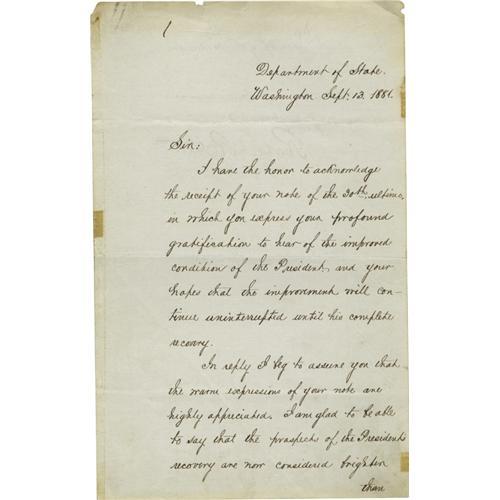 Department of State.
Washington Sept. 13. 1881.
Sir:
I have the honor to acknowledge
the receipt of your note of the 30th ultimo,
in which you express your profound
gratification to hear of the improved
condition of the President, and your
hopes that the improvement will con-
tinue uninterrupted until his complete
recovery.
In reply I beg to assure you that
the warm expressions of your note are
highly appreciated. I am glad to be able
to say that the prospects of the President's
recovery are now considered brighter
than